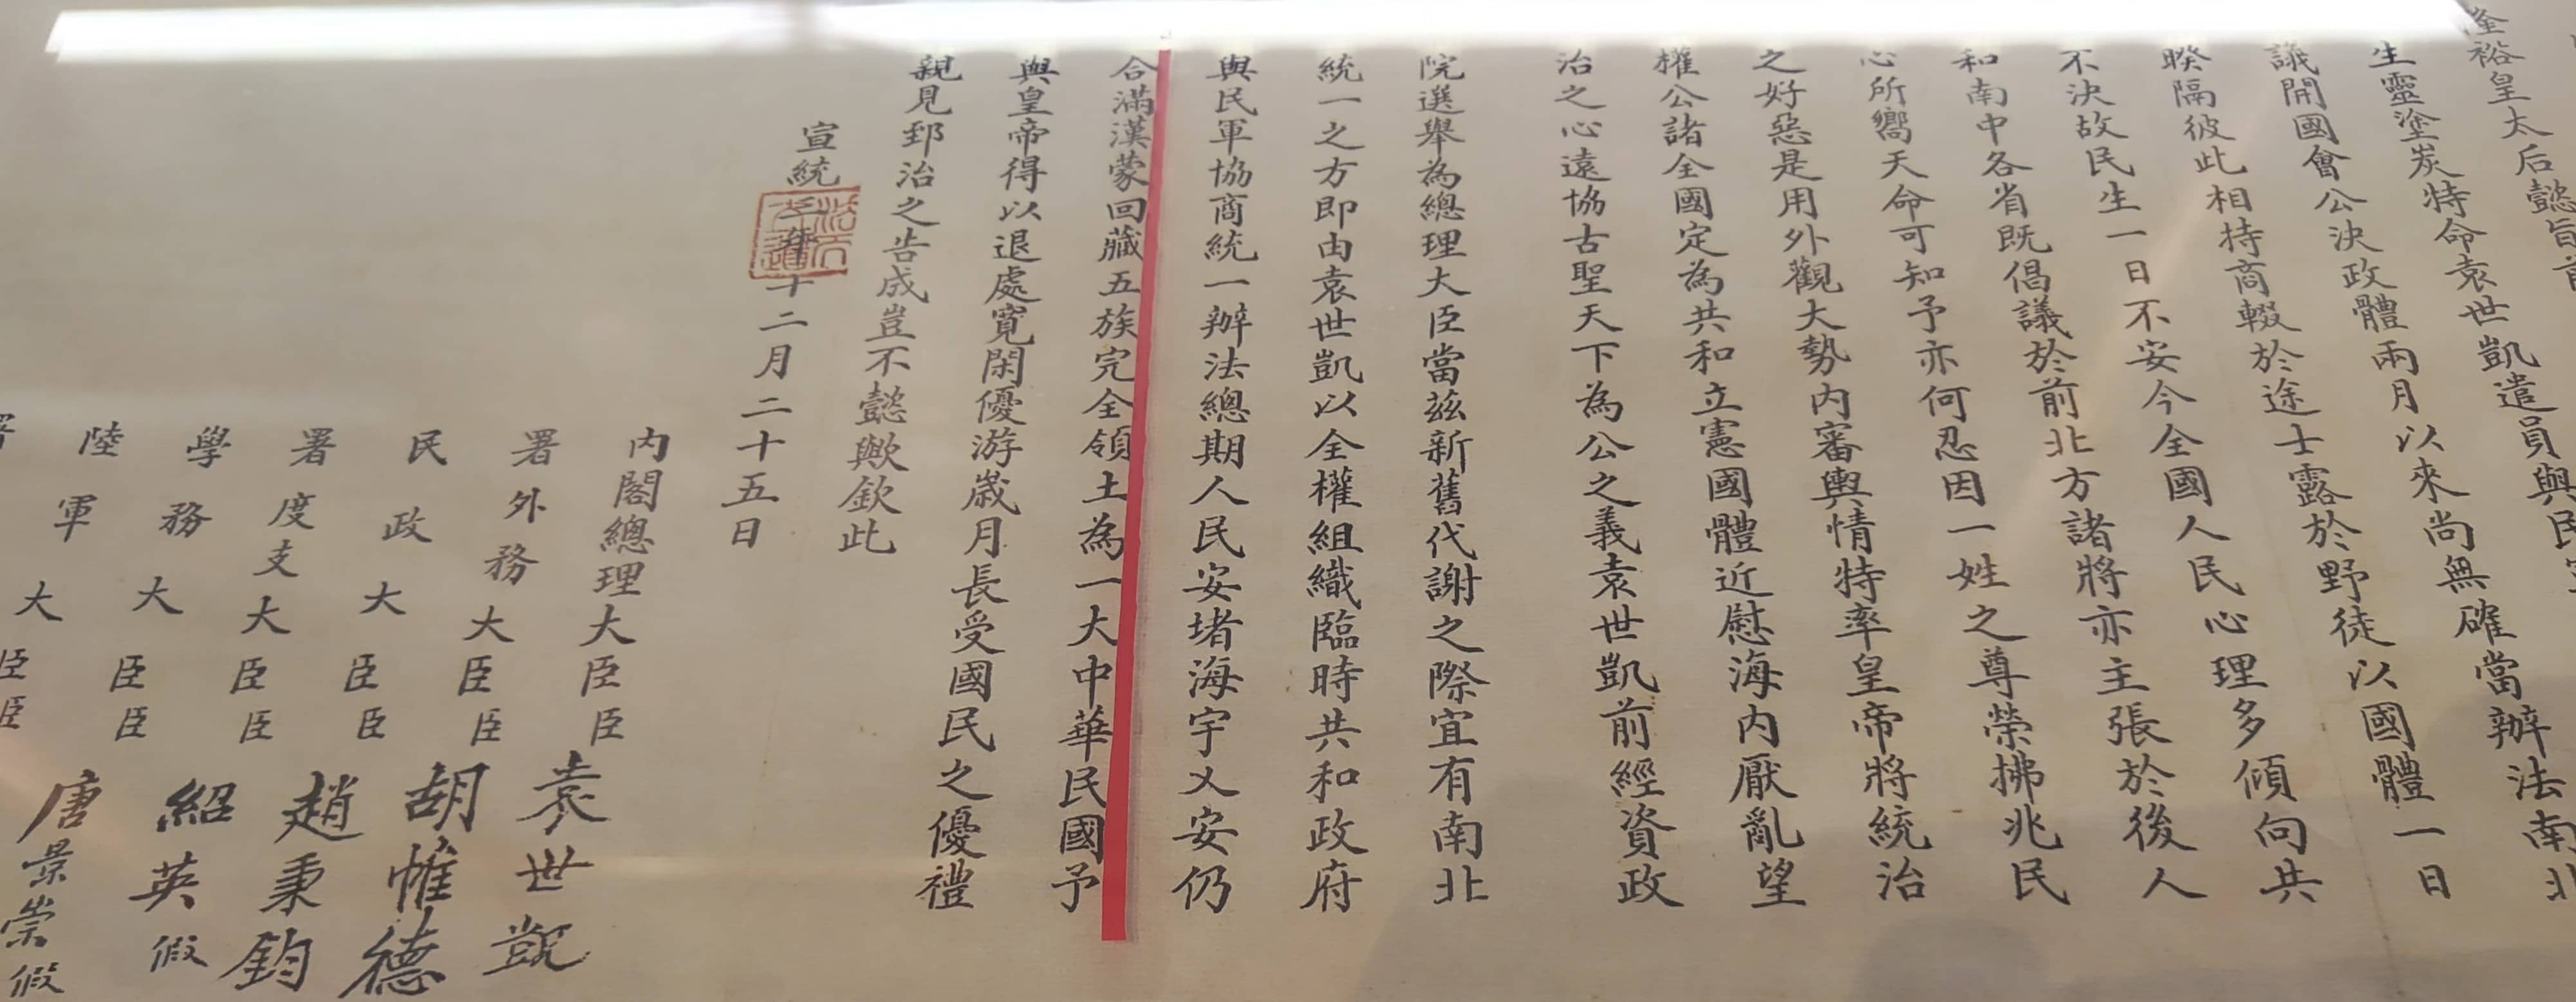 隆裕皇太后懿旨前
生靈塗炭特命袁世凱遣員與民
議開國會公決政體兩月以來尚無確當辦法南北
睽隔彼此相持商輟於途士露於野徒以國體一日
不決故民生一日不安今全國人民心理多傾向共
和南中各省既倡議於前北方諸將亦主張於後人
心所嚮天命可知予亦何忍因一姓之尊榮拂兆民
之好惡是用外觀大勢內審輿情特率皇帝將統治
權公諸全國定為共和立憲國體近慰海內厭亂望
治之心遠協古聖天下為公之義袁世凱前經資政
院選舉為總理大臣當茲新舊代謝之際宜有南北
統一之方即由袁世凱以全權組織臨時共和政府
與民軍協商統一辦法總期人民安堵海宇乂安仍
合滿漢蒙回藏五族完全領土為一大中華民國予
與皇帝得以退處寬閑優游歲月長受國民之優禮
親見郅治之告成豈不懿歟欽此
宣統三年十二月二十五日
法天立道
內閣總理大臣臣袁世凱
署外務大臣臣胡惟德
民政大臣臣趙秉鈞
署度支大臣臣紹英假
學務大臣臣唐景崇假
陸軍大臣臣
署